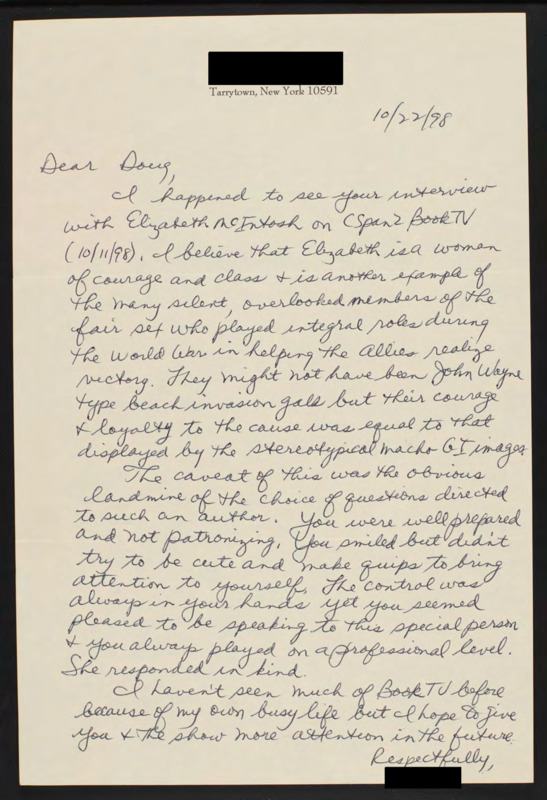 Tarrytown, New York 10591
10/22/98
Dear Doug,
I happened to see your interview
with Elizabeth McIntosh on CSpan2 BookTV
(10/11/98). I believe that Elizabeth is a woman
of courage and class & is another example of
the many silent, overlooked members of the
fair sex who played integral roles during
the World War in helping the Allies realize
victory. They might not have been John Wayne
type beach invasion gals but their courage
& loyalty to the cause was equal to that
displayed by the stereotypical macho GI images.
The caveat of this was the obvious
landmine of the choice of questions directed
to such an author. You were well prepared
and not patronizing. You smiled but didn't
try to be cute and make quips to bring
attention to yourself. The control was
always in your hands yet you seemed
pleased to be speaking to this special person
& you always played on a professional level.
She responded in kind.
I haven't seen much of BookTV before
because of my own busy life but I hope to give
you & the show more attention in the future.
Respectfully,